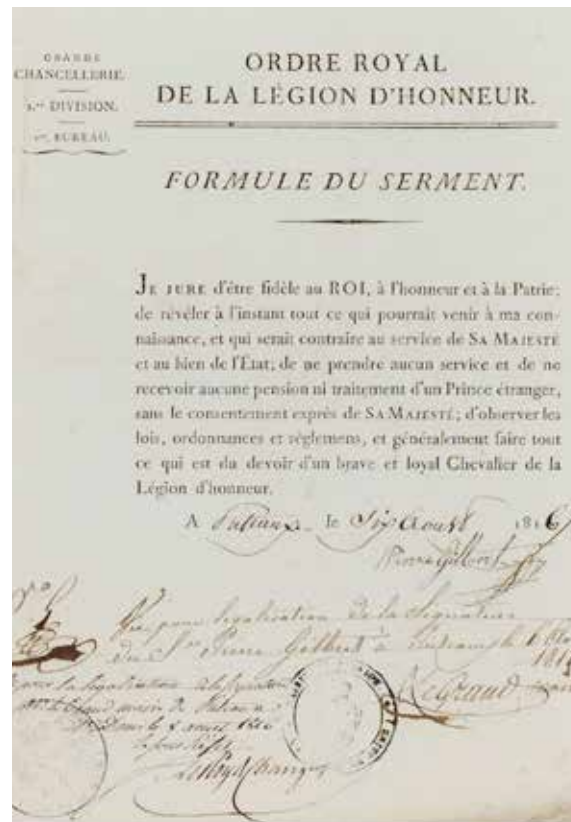 GRANDE
CHANCELLERIE.
DIVISION.
BUREAU.
ORDRE ROYAL
DE LA LÉGION D'HONNEUR.
FORMULE DU SERMENT.
JE JURE d'être fidèle au ROI, à l'honneur et à la Patrie;
de révéler à l'instant tout ce qui pourrait venir à ma con-
naissance, et qui serait contraire au service de SA MAJESTÉ
et au bien de l'État; de ne prendre aucun service et de ne
recevoir aucune pension ni traitement d'un Prince étranger,
sans le consentement exprès de SA MAJESTÉ; d'observer les
lois, ordonnances et réglemens, et généralement faire tout
ce qui est du devoir d'un brave et loyal Chevalier de la
Légion d'honneur.
A Puteaux le Six Aoust 1816
Pierre Gilbert
Vu pour légalisation de la Signature
du Sr. Pierre Gilbert à Puteaux le 6
Legrand maire
pour la légalisation de la signature
Mr. Legrand maire de Puteaux